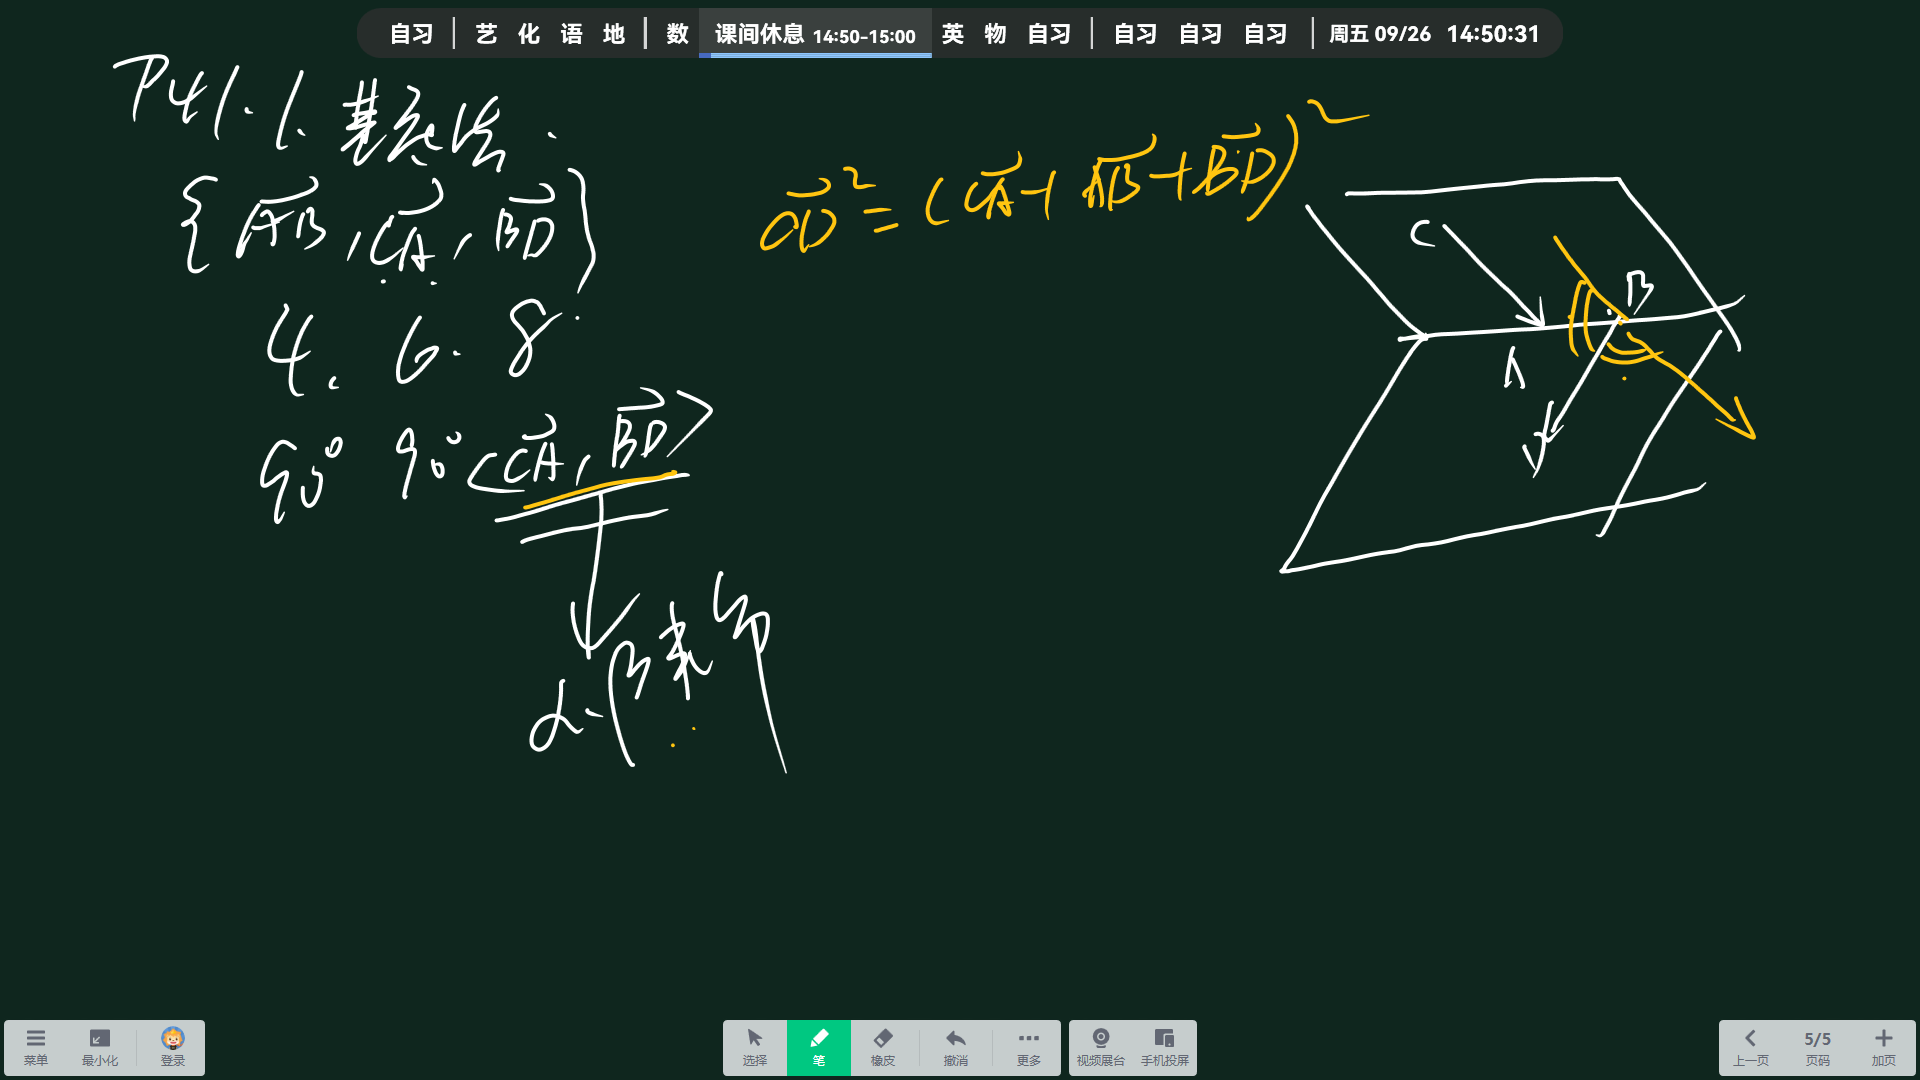 自习 | 艺 化 语 地 | 数 课间休息 14:50-15:00 英 物 自习 | 自习 自习 自习 | 周五 09/26 14:50:31
P41.1.基底法.
{AB, CA, BD}
4. 6. 8.
90° 90° <CA, BD>
α.β夹角
CD²=(CA+AB+BD)²
C
B
A
菜单 最小化 登录 选择 笔 橡皮 撤消 更多 视频展台 手机投屏 上一页 5/5 页码 加页